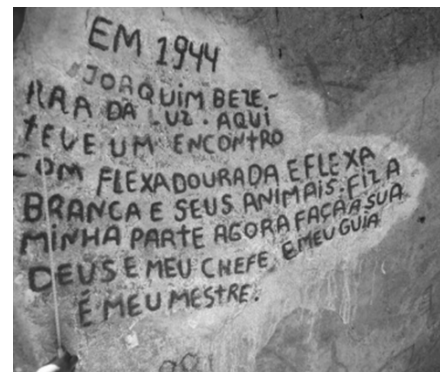 EM 1944
"JOAQUIM BEZE-
RRA DA LUZ. AQUI
TEVE UM ENCONTRO
COM FLEXADOURADA E FLEXA
BRANCA E SEUS ANIMAIS. FIZ A
MINHA PARTE AGORA FAÇA A SUA
DEUS E MEU CHEFE, E MEU GUIA
É MEU MESTRE.